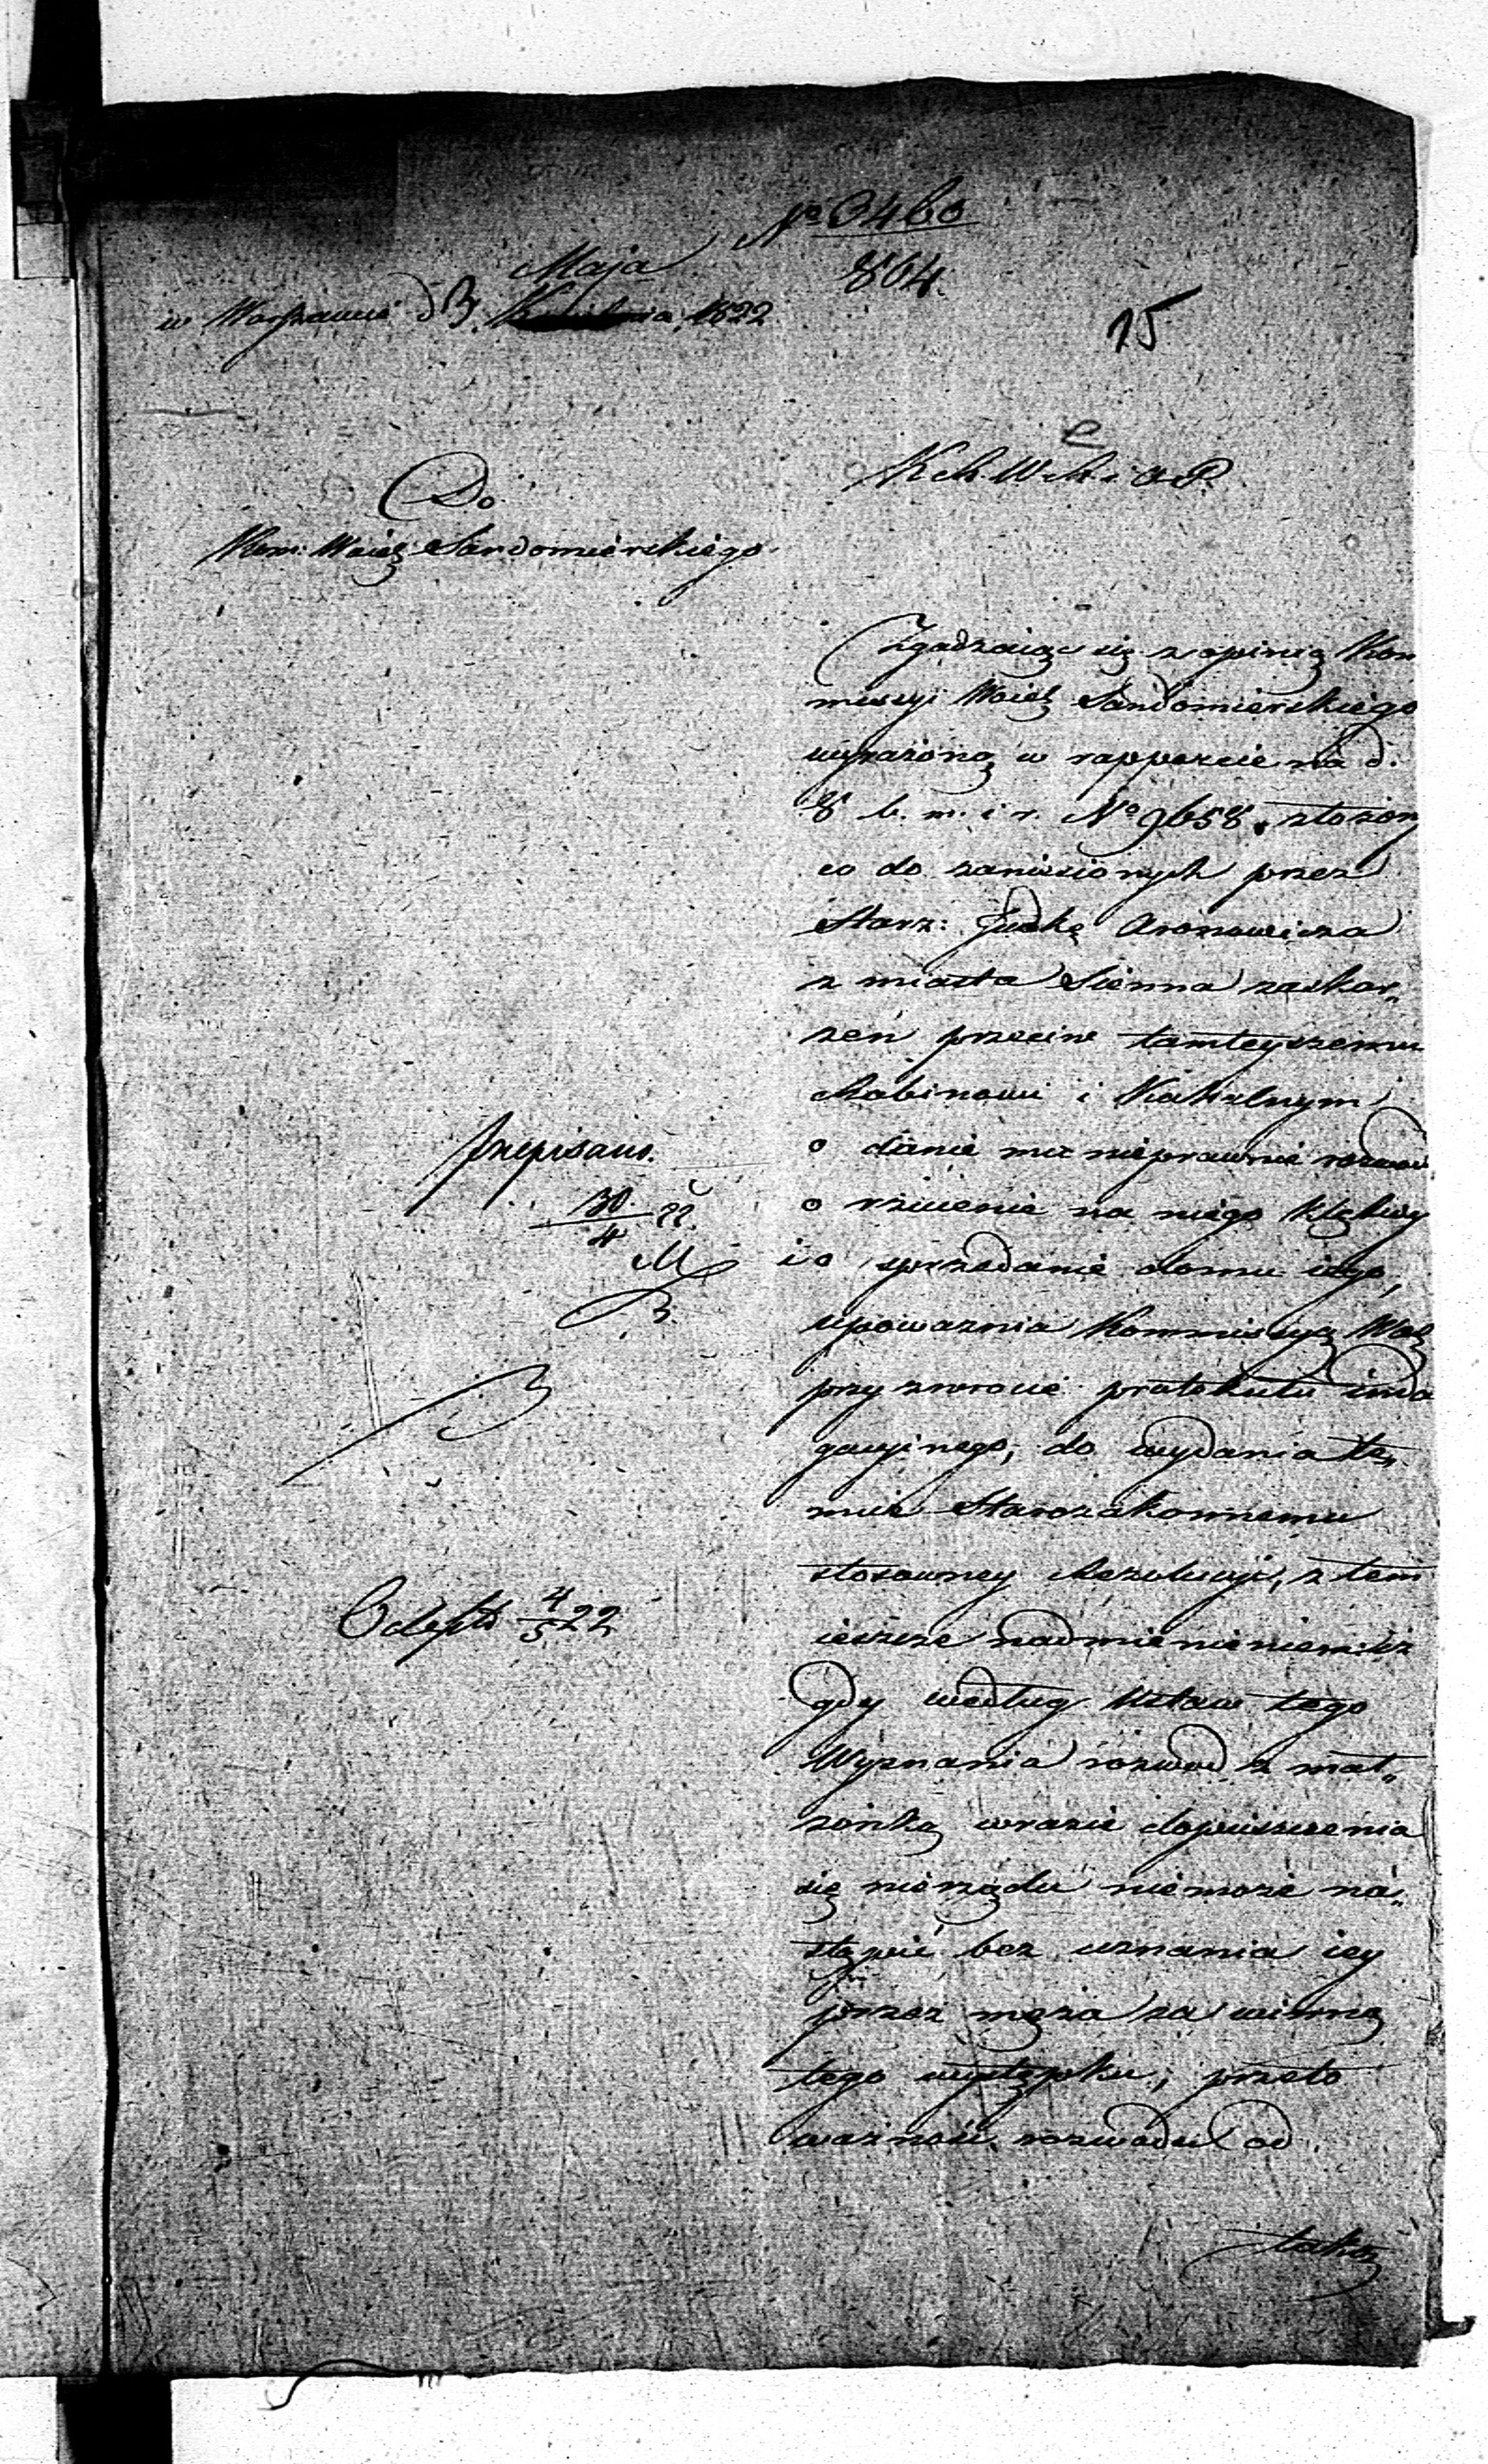 No 3460
864.
Maja
w Warszawie d 3. Kwietnia 1822
15
Do
Kom: Woiew: Sandomierskiego.
K. R. W. R. i O. P.
Zgadzaiąc się z opinią Kom
missyi Woiew Sandomierskiego
wyrażoną w rapporcie na d.
8 b. m. i r. No 9658 złożony
co do zaniesionych przez
Starz: Judkę Aronowicza
z miasta Sienna zaskar„
żeń przeciw tamteyszemu
Rabinowi i Kahalnym
o danie mu nieprawnie rozwodu
o rzucenie na niego klątwy
i o sprzedanie domu iego,
upoważnia Kommissyą Woiew
przy zwrocie protokułu inda
gacyinego, do wydania te„
muż Starozakonnemu
stosowney Rezolucyi, z tem
ieszcze nadmienieniem: iż
gdy według Ustaw tego
Wyznania rozwod z mał„
żonką w razie dopuszczenia
się nierządu niemoże na„
stąpić bez uznania iey
przez męża za winną
tego występku, przeto
ważność rozwodu od
takż
przepisano.
30/4 22.
M
Odeszło 4/5 22